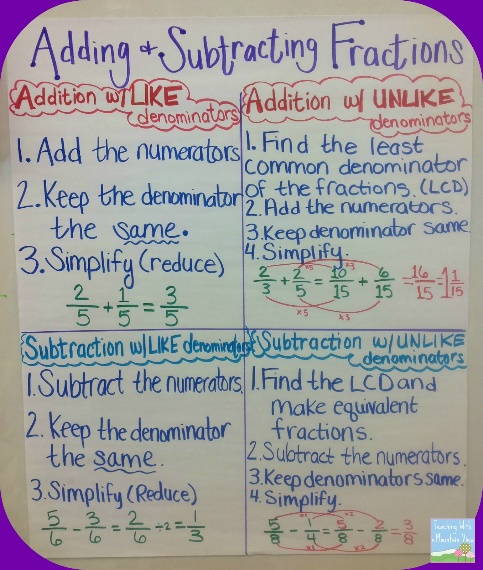 Adding + Subtracting Fractions
Addition w/ LIKE
denominators
1. Add the numerators
2. Keep the denominator
the same.
3. Simplify (reduce)
2/5 + 1/5 = 3/5
Addition w/ UNLIKE
denominators
1. Find the least
common denominator
of the fractions. (LCD)
2. Add the numerators.
3. Keep denominator same
4. Simplify.
x5 x3
2/3 + 2/5 = 10/15 + 6/15 = 16/15 = 1 1/15
x5 x3
Subtraction w/ LIKE denominators
1. Subtract the numerators.
2. Keep the denominator
the same.
3. Simplify (Reduce)
5/6 - 3/6 = 2/6 ÷2 = 1/3
Subtraction w/ UNLIKE
denominators
1. Find the LCD and
make equivalent
fractions.
2. Subtract the numerators.
3. Keep denominators same.
4. Simplify.
x1 x2
5/8 - 1/4 = 5/8 - 2/8 = 3/8
x1 x2
Teaching With
a Mountain View